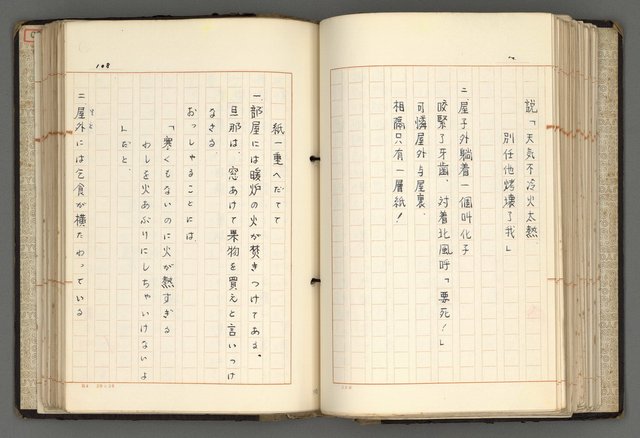 説「天気不冷火太熱
別任他烤壞了我」
二、屋子外躺着一個叫化子
咬緊了牙齒、対着北風呼「要死！」
可憐屋外与屋裏、
相隔只有一層紙！
108
紙一重へだてて
一部屋には暖炉の火が焚きつけてある。
旦那は、窓あけて果物を買えと言いつけ
なさる
おっしゃることには
「寒くもないのに火が熱すぎる
わしを火あぶりにしちゃいけないよ
」だと、
二屋外には乞食が横たわっている
そと